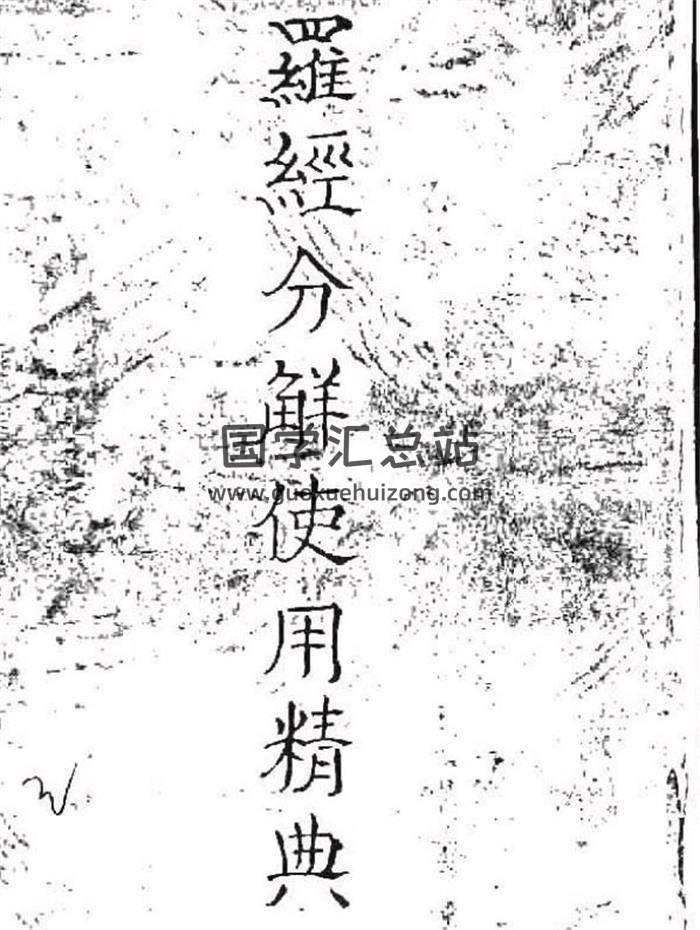 羅經分觧使用精典
国学汇总站
www.guoxuehuizong.com